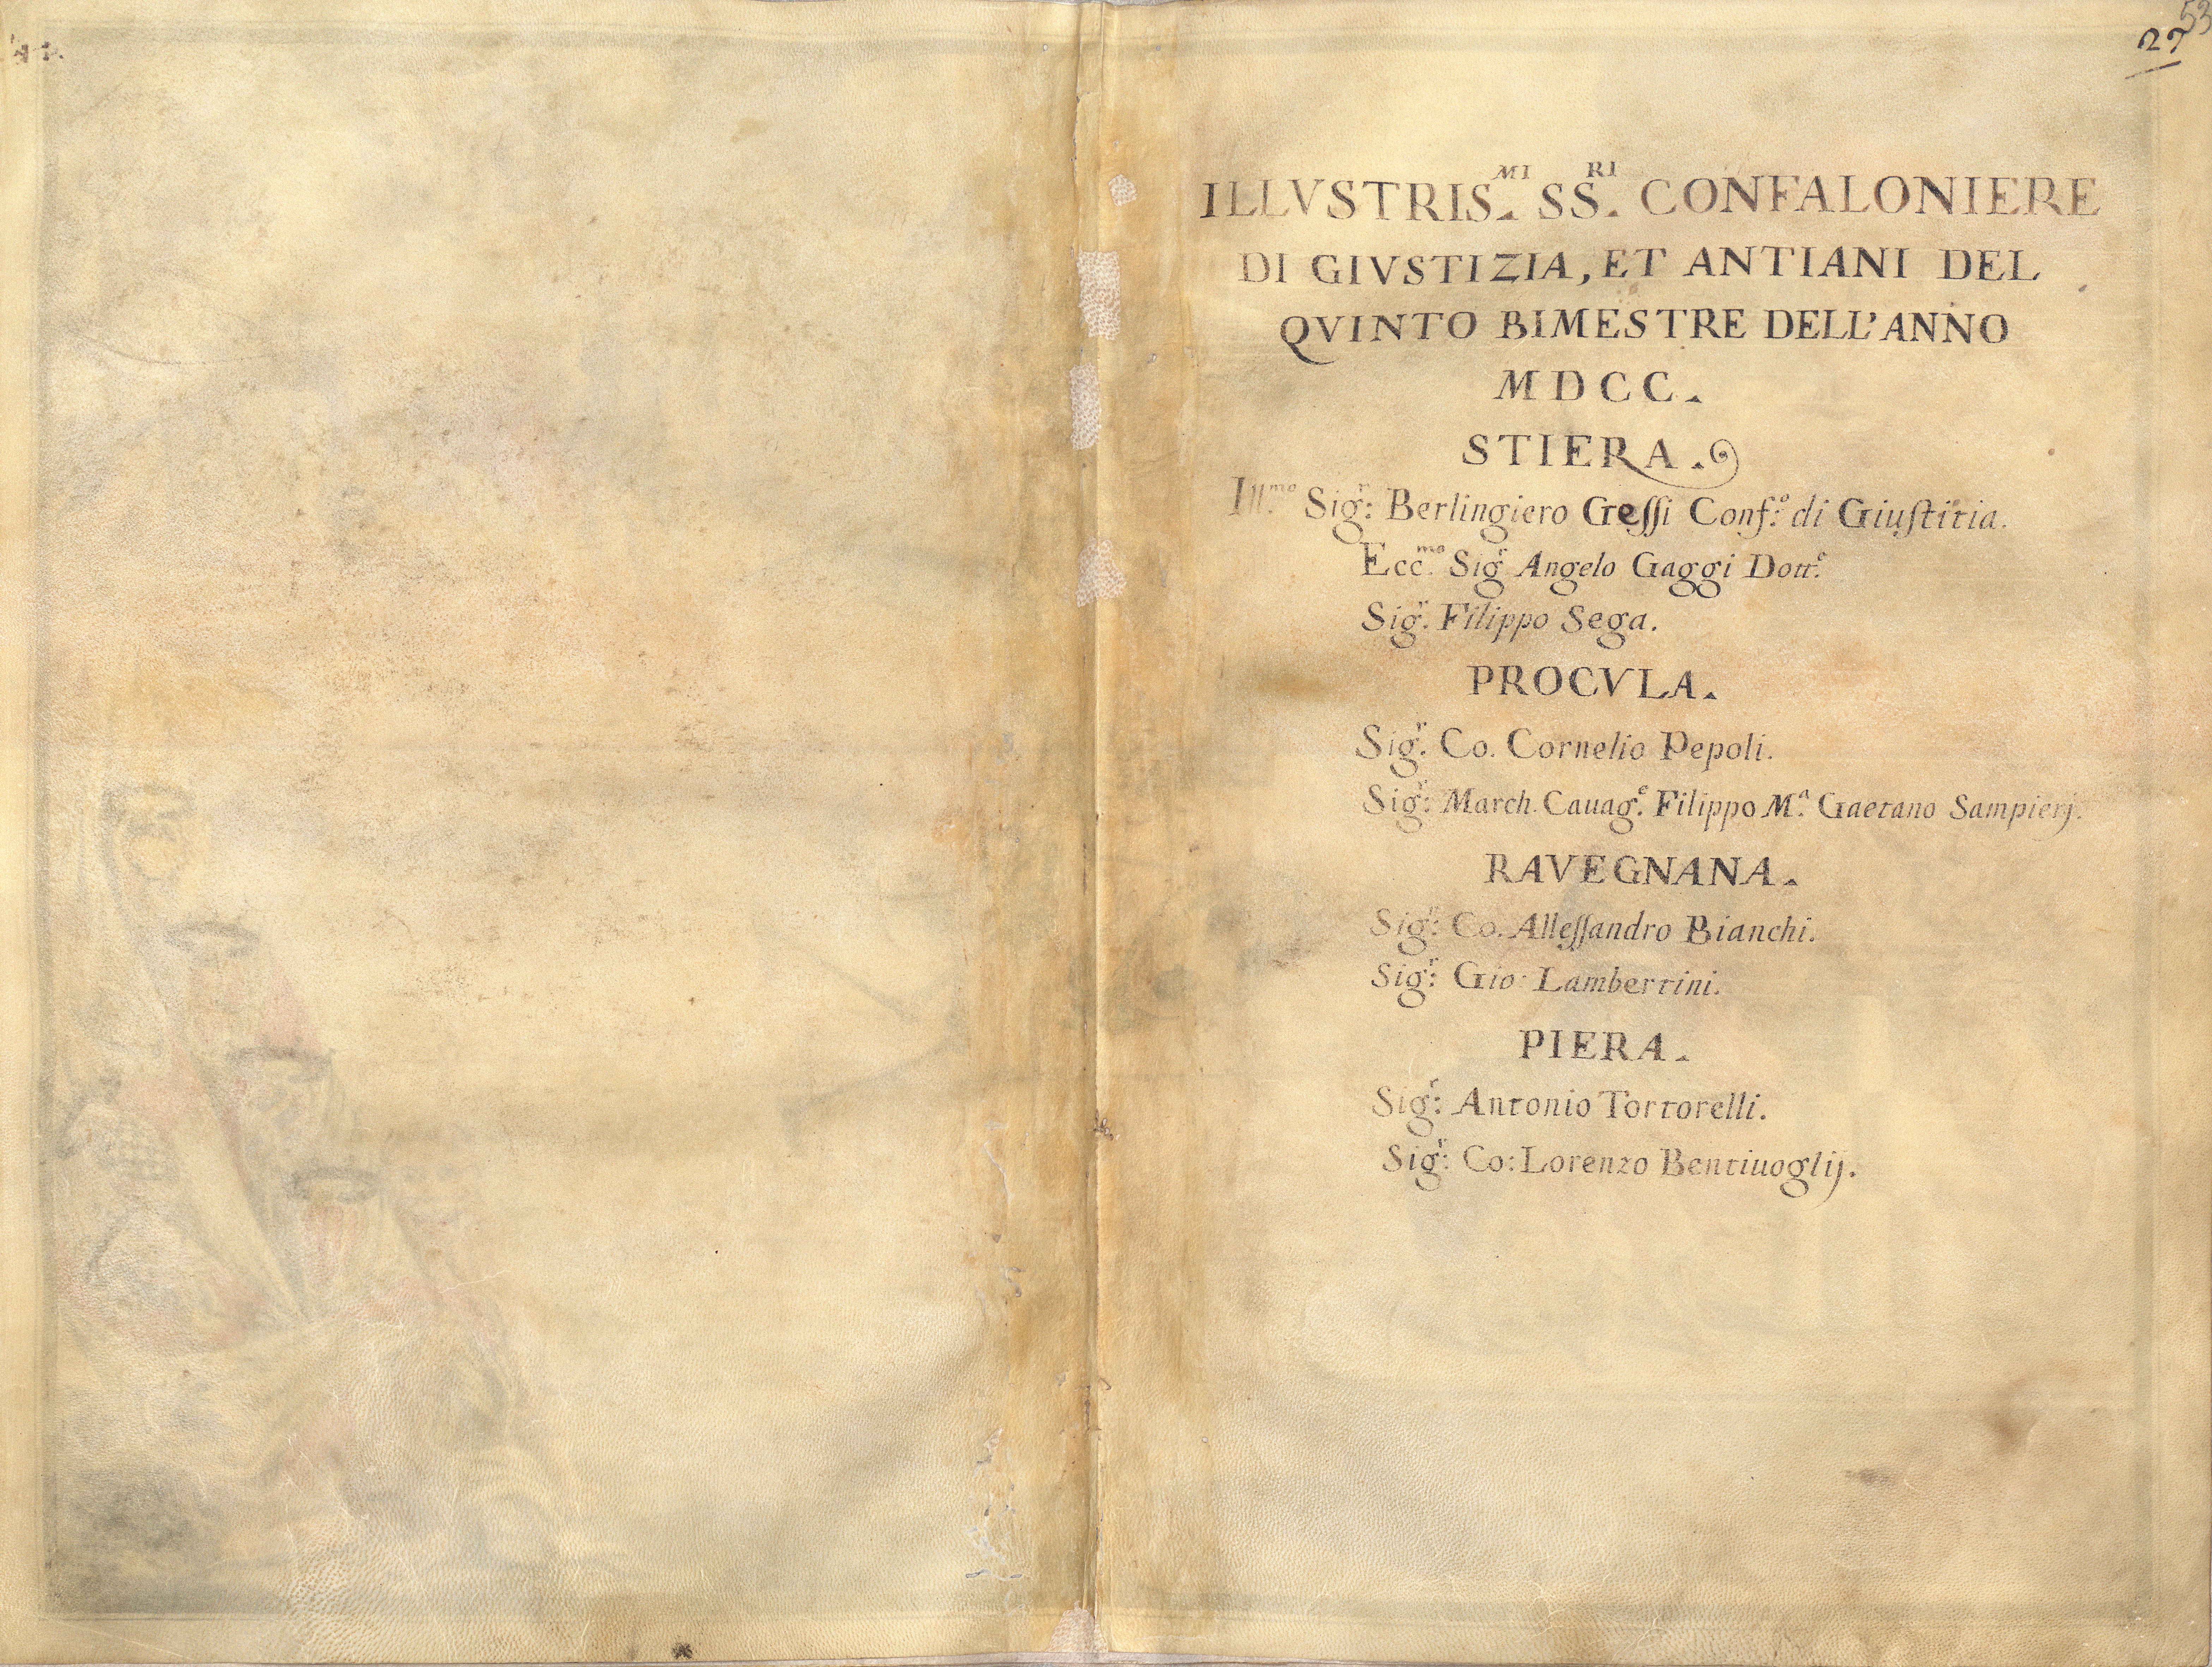 53
27
ILLVSTRIS.MI SS.RI CONFALONIERE
DI GIVSTIZIA, ET ANTIANI DEL
QVINTO BIMESTRE DELL'ANNO
MDCC.
STIERA.
Ill.mo Sig.r: Berlingiero Geſſi Conf.o: di Giuſtitia.
Ecc.mo Sig.r Angelo Gaggi Dott.e
Sig.r Filippo Sega.
PROCVLA.
Sig.r Co. Cornelio Pepoli.
Sig.r: March. Cauag.e Filippo M.a Gaetano Sampierj.
RAVEGNANA.
Sig.r: Co. Alleſſandro Bianchi.
Sig.r: Gio: Lambertini.
PIERA.
Sig.r: Antonio Tortorelli.
Sig.r: Co: Lorenzo Bentiuoglij.